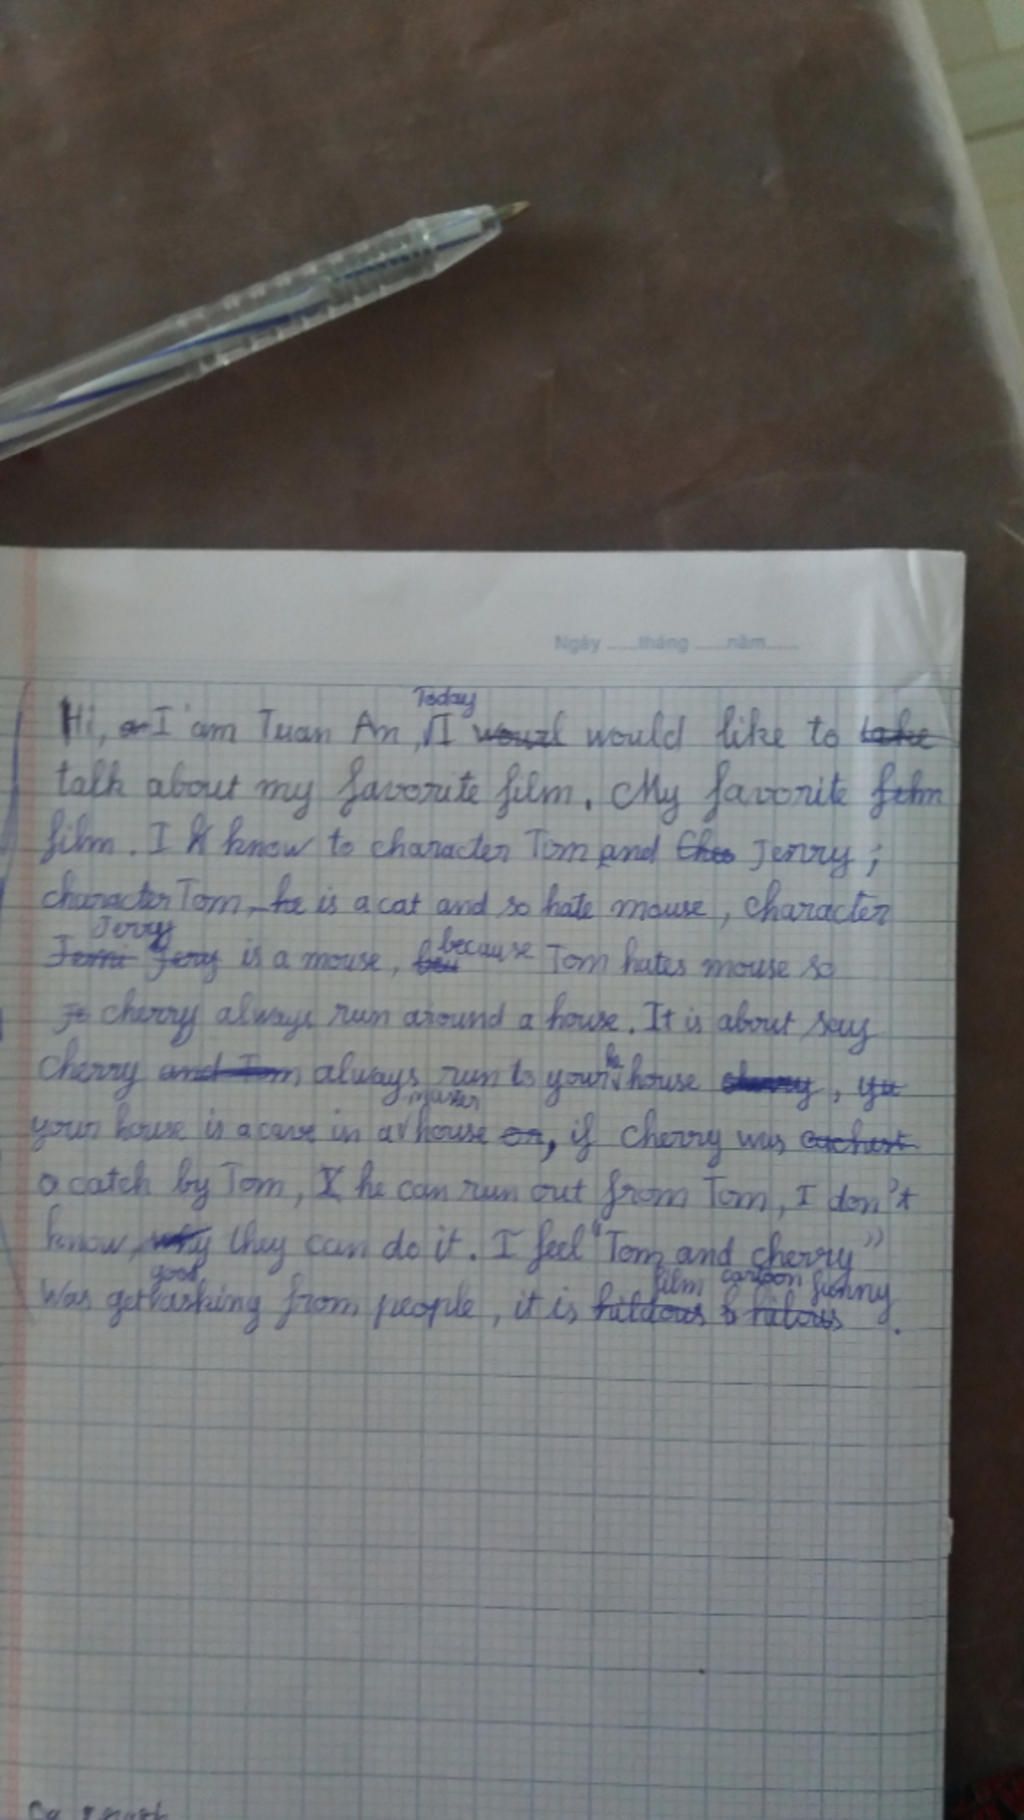 Ngày ......tháng ......năm......
Today
Hi, I'am Tuan An, I would like to take
talk about my favorite film. My favorite film
film. I know to character Tom and Jerry;
character Tom, he is a cat and so hate mouse, character
Jerry
Jemi Jery is a mouse, because Tom hates mouse so
cherry always run around a house. It is about say
he
cherry and Tom always run to your house cherry, yu
master
your house is a cave in a house on, if cherry was
a catch by Tom, he can run out from Tom, I don't
know, why they can do it. I feel "Tom and cherry"
good film cartoon funny
Was get asking from people, it is .